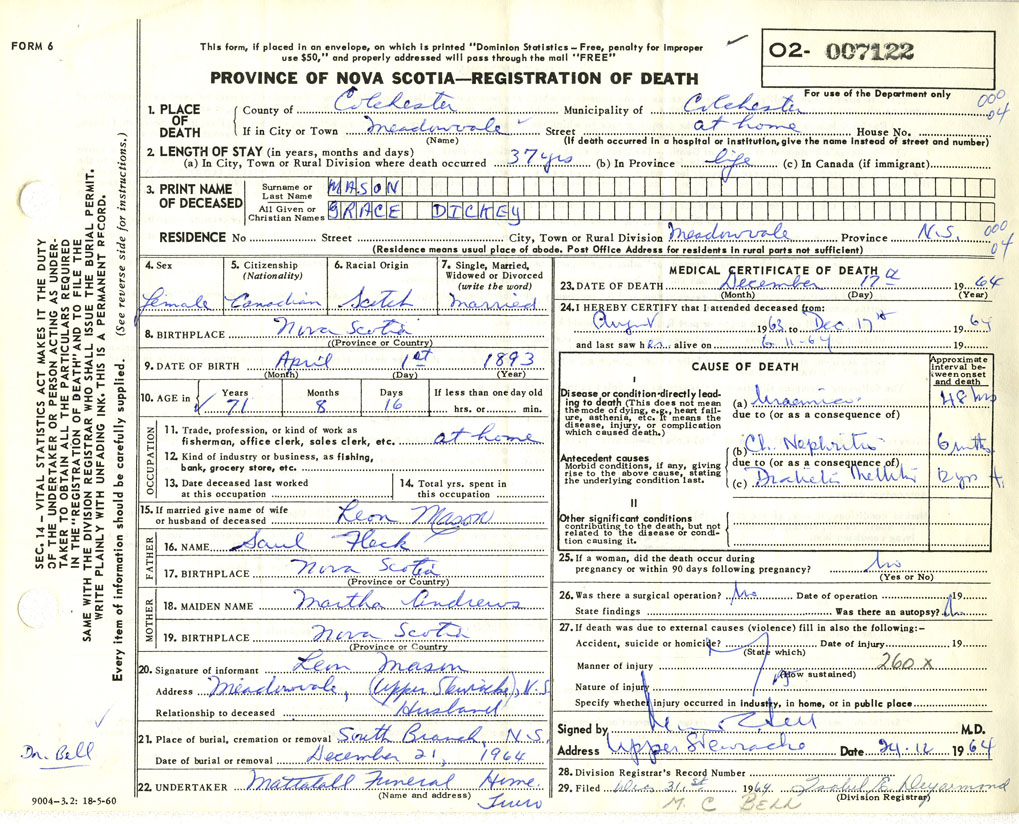 FORM 6
This form, if placed in an envelope, on which is printed "Dominion Statistics – Free, penalty for improper
use $50," and properly addressed will pass through the mail "FREE"
PROVINCE OF NOVA SCOTIA—REGISTRATION OF DEATH
O2- 007122
For use of the Department only
000
04
1. PLACE OF DEATH
County of Colchester Municipality of Colchester
If in City or Town Meadowvale Street at home House No.
(Name) (If death occurred in a hospital or institution, give the name instead of street and number)
2. LENGTH OF STAY (in years, months and days)
(a) In City, Town or Rural Division where death occurred 37 yrs (b) In Province life (c) In Canada (if immigrant)
3. PRINT NAME OF DECEASED
Surname or Last Name MASON
All Given or Christian Names GRACE DICKEY
RESIDENCE No Street City, Town or Rural Division Meadowvale Province N.S. 000
04
(Residence means usual place of abode. Post Office Address for residents in rural parts not sufficient)
4. Sex female
5. Citizenship (Nationality) Canadian
6. Racial Origin Scotch
7. Single, Married, Widowed or Divorced (write the word) Married
8. BIRTHPLACE Nova Scotia
(Province or County)
9. DATE OF BIRTH April 1st 1893
(Month) (Day) (Year)
10. AGE in Years 71 Months 8 Days 16 If less than one day old hrs. or min.
OCCUPATION
11. Trade, profession, or kind of work as fisherman, office clerk, sales clerk, etc. at home
12. Kind of industry or business, as fishing, bank, grocery store, etc.
13. Date deceased last worked at this occupation
14. Total yrs. spent in this occupation
15. If married give name of wife or husband of deceased Leon Mason
FATHER
16. NAME Saul Fleck
17. BIRTHPLACE Nova Scotia
(Province or Country)
MOTHER
18. MAIDEN NAME Martha Andrews
19. BIRTHPLACE Nova Scotia
(Province or Country
20. Signature of informant Leon Mason
Address Meadowvale, (Upper Stewiacke), N.S.
Relationship to deceased Husband
21. Place of burial, cremation or removal South Branch, N.S.
Date of burial or removal December 21, 1964
22. UNDERTAKER Mattatall Funeral Home.
(Name and address) Truro
9004–3.2: 18-5-60
MEDICAL CERTIFICATE OF DEATH
23. DATE OF DEATH December 17th 1964
(Month) (Day) (Year)
24. I HEREBY CERTIFY that I attended deceased from:
August 1963 to Dec. 17th 1964
and last saw her alive on 6-11-64 19
CAUSE OF DEATH
Approximate interval between onset and death
I
Disease or condition directly leading to death (This does not mean the mode of dying, e.g., heart failure, asthenia, etc. It means the disease, injury, or complication which caused death.)
(a) Uraemia 48 hrs
due to (or as a consequence of)
(b) Ch. Nephritis 6 mths
Antecedent causes
Morbid conditions, if any, giving rise to the above cause, stating the underlying condition last.
due to (or as a consequence of)
(c) Diabetes Mellitus 12 yrs
II
Other significant conditions
contributing to the death, but not related to the disease or condition causing it.
25. If a woman, did the death occur during pregnancy or within 90 days following pregnancy? No
(Yes or No)
26. Was there a surgical operation? No Date of operation 19
State findings Was there an autopsy? No
27. If death was due to external causes (violence) fill in also the following:–
Accident, suicide or homicide? Date of injury 19
(State which)
Manner of injury 260 X
(How sustained)
Nature of injury
Specify whether injury occurred in industry, in home, or in public place
Signed by M.D.
Address Upper Stewiacke Date 24.12 1964
28. Division Registrar's Record Number
29. Filed Dec 31st 1964 Isabel E. Deyarmond
(Division Registrar)
M. C BELL
SEC. 14 – VITAL STATISTICS ACT MAKES IT THE DUTY
OF THE UNDERTAKER OR PERSON ACTING AS UNDER-
TAKER TO OBTAIN ALL THE PARTICULARS REQUIRED
IN THE "REGISTRATION OF DEATH" AND TO FILE THE
SAME WITH THE DIVISION REGISTRAR WHO SHALL ISSUE THE BURIAL PERMIT.
WRITE PLAINLY WITH UNFADING INK. THIS IS A PERMANENT RECORD.
Every item of information should be carefully supplied. (See reverse side for instructions.)
Dr. Bell